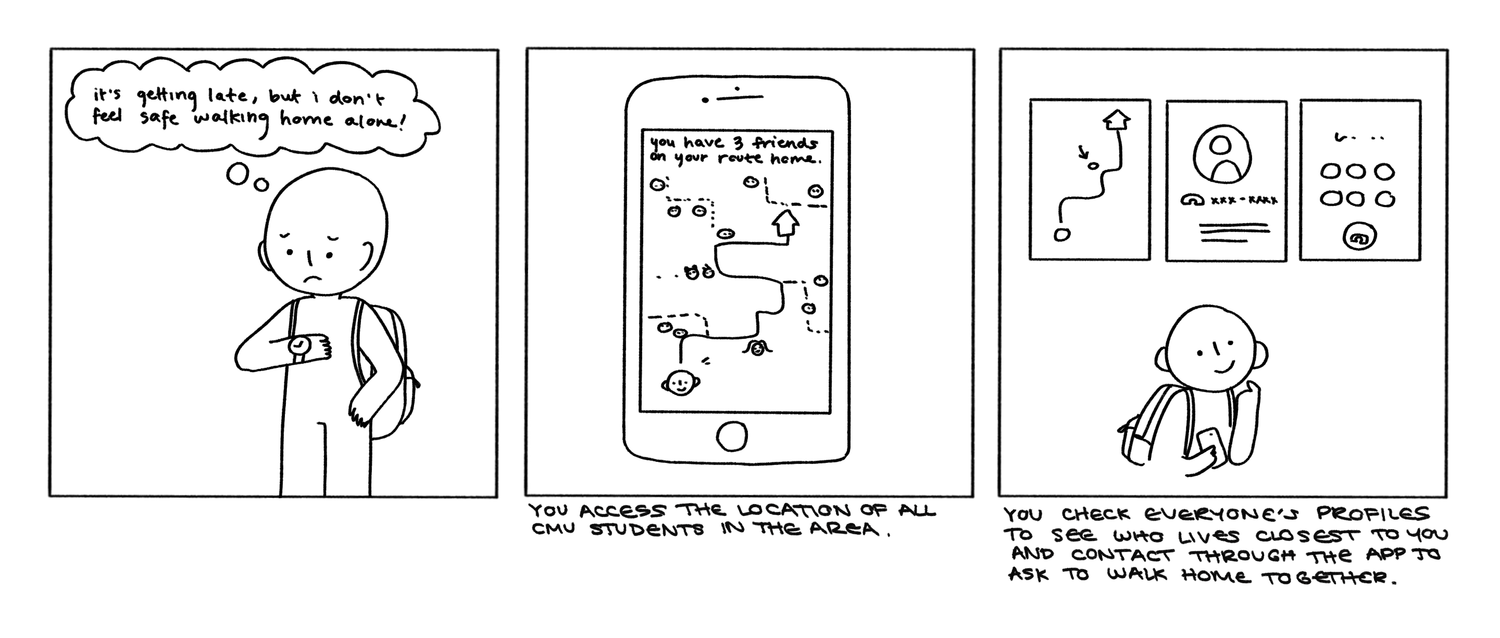 it's getting late, but i don't
feel safe walking home alone!
you have 3 friends
on your route home.
xxx-xxxx
YOU ACCESS THE LOCATION OF ALL
CMU STUDENTS IN THE AREA.
YOU CHECK EVERYONE'S PROFILES
TO SEE WHO LIVES CLOSEST TO YOU
AND CONTACT THROUGH THE APP TO
ASK TO WALK HOME TOGETHER.